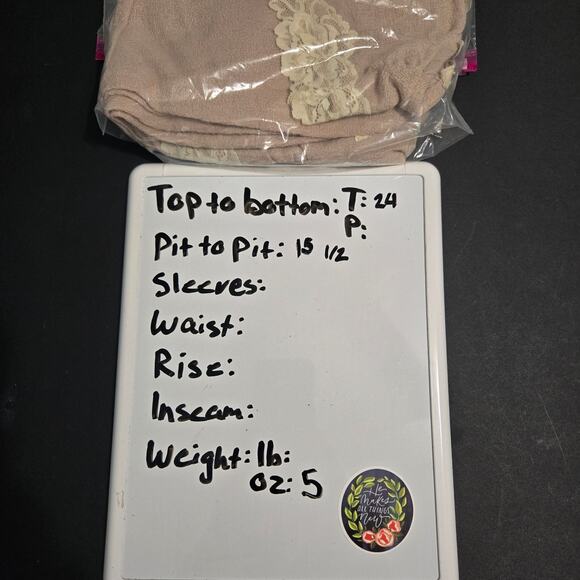 Top to bottom: T: 24
P:
Pit to Pit: 15 1/2
Sleeves:
Waist:
Rise:
Inseam:
Weight: lb:
oz: 5
He
makes
ALL THINGS
New